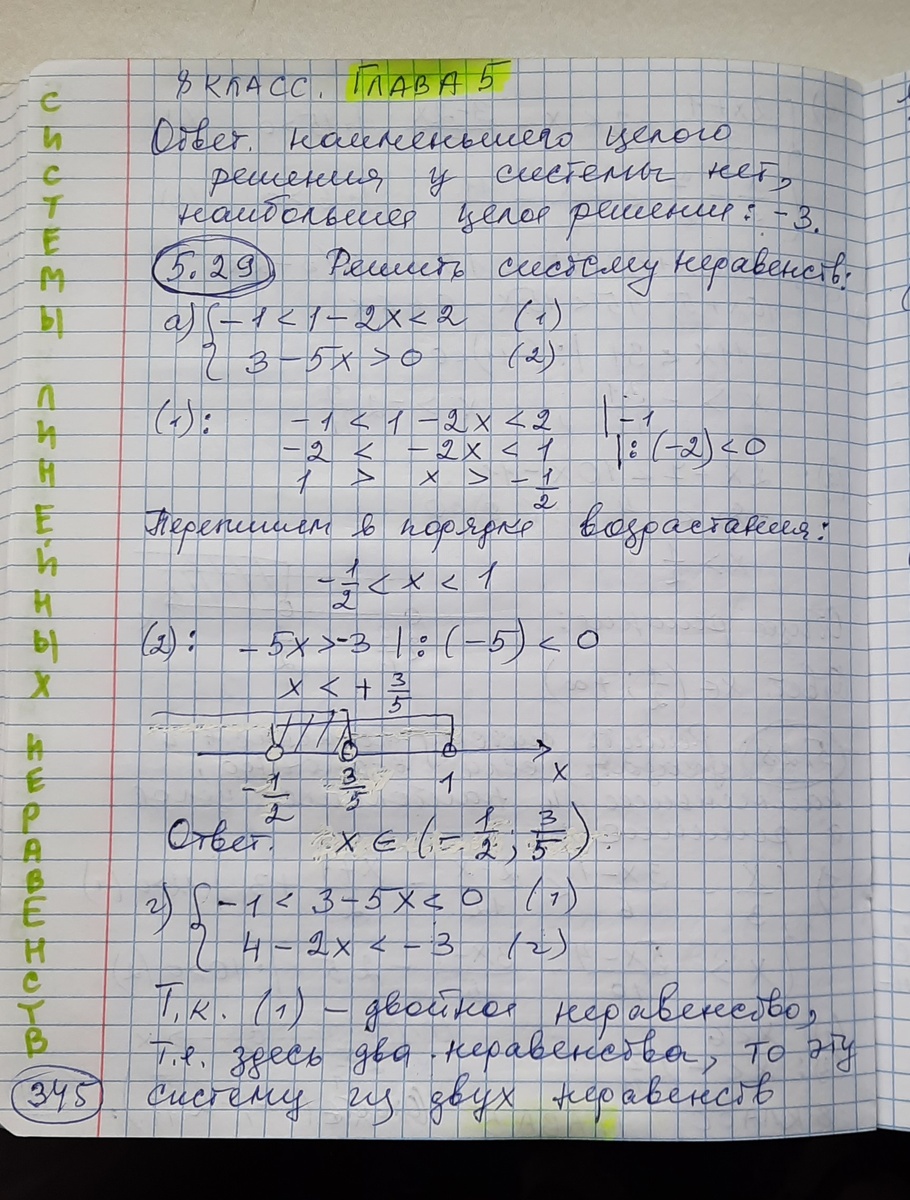 8 КЛАСС. ГЛАВА 5
Ответ. наименьшего целого
решения у системы нет,
наибольшее целое решение: -3.
5.29 Решить систему неравенств:
а) { -1 < 1 - 2x < 2 (1)
3 - 5x > 0 (2)
(1): -1 < 1 - 2x < 2 | -1
-2 < -2x < 1 | : (-2) < 0
1 > x > -1/2
Перепишем в порядке возрастания:
-1/2 < x < 1
(2): -5x > -3 | : (-5) < 0
x < + 3/5
-1/2 3/5 1 x
Ответ. x ∈ (-1/2; 3/5).
г) { -1 < 3 - 5x < 0 (1)
4 - 2x < -3 (2)
Т.к. (1) – двойное неравенство,
т.е. здесь два неравенства, то эту
систему из двух неравенств
СИСТЕМЫ ЛИНЕЙНЫХ НЕРАВЕНСТВ
345